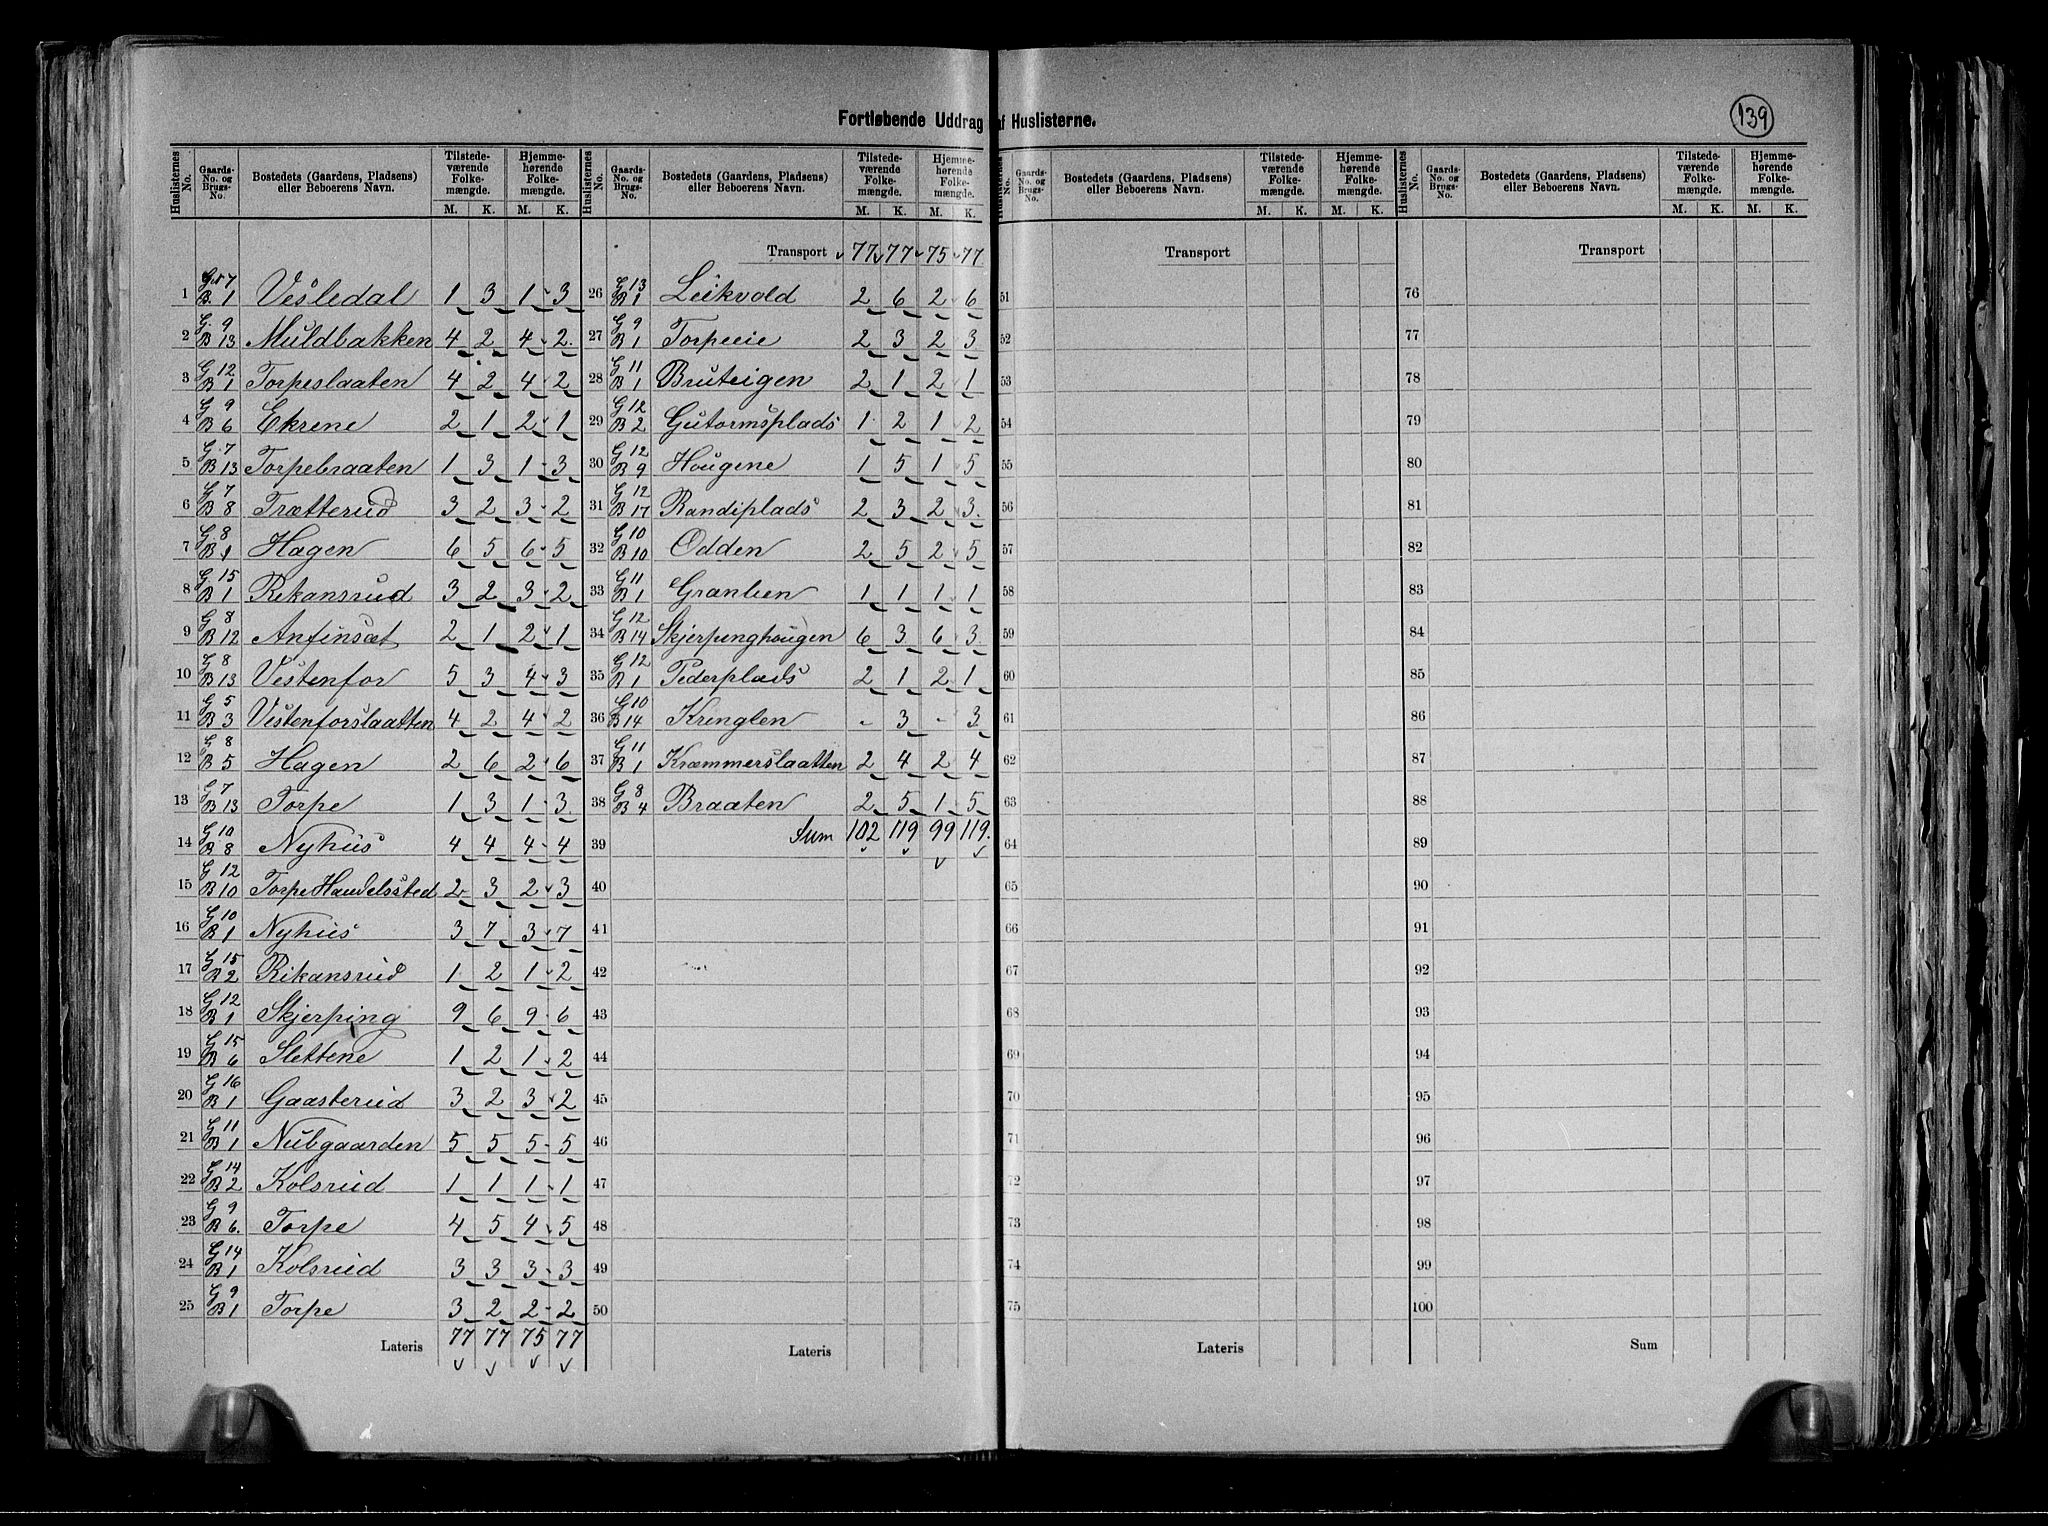 Fortløbende Uddrag af Huslisterne.
139
Huslisternes No. Gaards-No. og Brugs-No. Bostedets (Gaardens, Pladsens) eller Beboerens Navn. Tilstedeværende Folkemængde. M. K. Hjemmehørende Folkemængde. M. K.
1 G. 7 B. 1 Vesledal 1 3 1 3
2 G. 9 B 13 Muldbakken 4 2 4 2
3 G 12 B 1 Torpeslaaten 4 2 4 2
4 G 9 B 6 Ekrene 2 1 2 1
5 G. 7 B 13 Torpebraaten 1 3 1 3
6 G 7 B 8 Trætterud 3 2 3 2
7 G. 8 B 1 Hagen 6 5 6 5
8 G. 15 B 1 Rikansrud 3 2 3 2
9 G 8 B 12 Anfinsæt 2 1 2 1
10 G 8 B 13 Vestenfor 5 3 4 3
11 G 5 B 3 Vestenforslaatten 4 2 4 2
12 G 8 B 5 Hagen 2 6 2 6
13 G 7 B 13 Torpe 1 3 1 3
14 G 10 B 8 Nyhus 4 4 4 4
15 G 12 B 10 Torpe Handelssted 2 3 2 3
16 G 10 B 1 Nyhus 3 7 3 7
17 G 15 B 2 Rikansrud 1 2 1 2
18 G 12 B 1 Skjerping 9 6 9 6
19 G 15 B 6 Slettene 1 2 1 2
20 G 16 B 1 Gaasterud 3 2 3 2
21 G 11 B 1 Nubgaarden 5 5 5 5
22 G 14 B 2 Kolsrud 1 1 1 1
23 G 9 B 6. Torpe 4 5 4 5
24 G 14 B 1 Kolsrud 3 3 3 3
25 G 9 B 1 Torpe 3 2 2 2
Lateris 77 77 75 77
Huslisternes No. Gaards-No. og Brugs-No. Bostedets (Gaardens, Pladsens) eller Beboerens Navn. Tilstedeværende Folkemængde. M. K. Hjemmehørende Folkemængde. M. K.
Transport 77 77 75 77
26 G 13 B 1 Leikvold 2 6 2 6
27 G 9 B 1 Torpeeie 2 3 2 3
28 G 11 B 1 Bruteigen 2 1 2 1
29 G 12 B 2 Gutormsplads 1 2 1 2
30 G 12 B 9 Hougene 1 5 1 5
31 G 12 B 17 Randiplads 2 3 2 3
32 G 10 B 10 Odden 2 5 2 5
33 G 11 B 1 Granlien 1 1 1 1
34 G 12 B 14 Skjerpinghougen 6 3 6 3
35 G 12 B 1 Pederplads 2 1 2 1
36 G 10 B 14 Kringlen - 3 - 3
37 G 11 B 1 Kræmmerslaatten 2 4 2 4
38 G 8 B 4 Braaten 2 5 1 5
39 Sum 102 119 99 119.
40
41
42
43
44
45
46
47
48
49
50
Lateris
Huslisternes No. Gaards-No. og Brugs-No. Bostedets (Gaardens, Pladsens) eller Beboerens Navn. Tilstedeværende Folkemængde. M. K. Hjemmehørende Folkemængde. M. K.
Transport
51
52
53
54
55
56
57
58
59
60
61
62
63
64
65
66
67
68
69
70
71
72
73
74
75
Lateris
Huslisternes No. Gaards-No. og Brugs-No. Bostedets (Gaardens, Pladsens) eller Beboerens Navn. Tilstedeværende Folkemængde. M. K. Hjemmehørende Folkemængde. M. K.
Transport
76
77
78
79
80
81
82
83
84
85
86
87
88
89
90
91
92
93
94
95
96
97
98
99
100
Sum